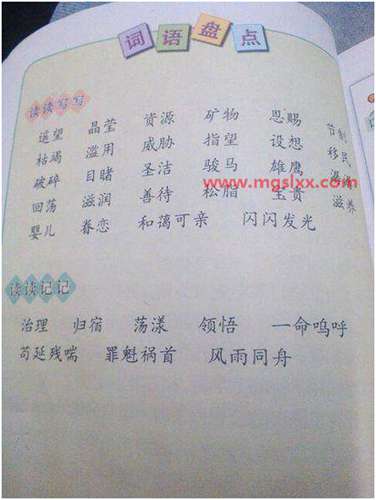 词语盘点
读读写写
遥望 晶莹 资源 矿物 恩赐 节制
枯竭 滥用 威胁 指望 设想 移民
破碎 目睹 圣洁 骏马 雄鹰
www.mgslxx.com
回荡 滋润 善待 松脂 宝贵 滋养
婴儿 眷恋 和蔼可亲 闪闪发光
读读记记
治理 归宿 荡漾 领悟 一命呜呼
苟延残喘 罪魁祸首 风雨同舟